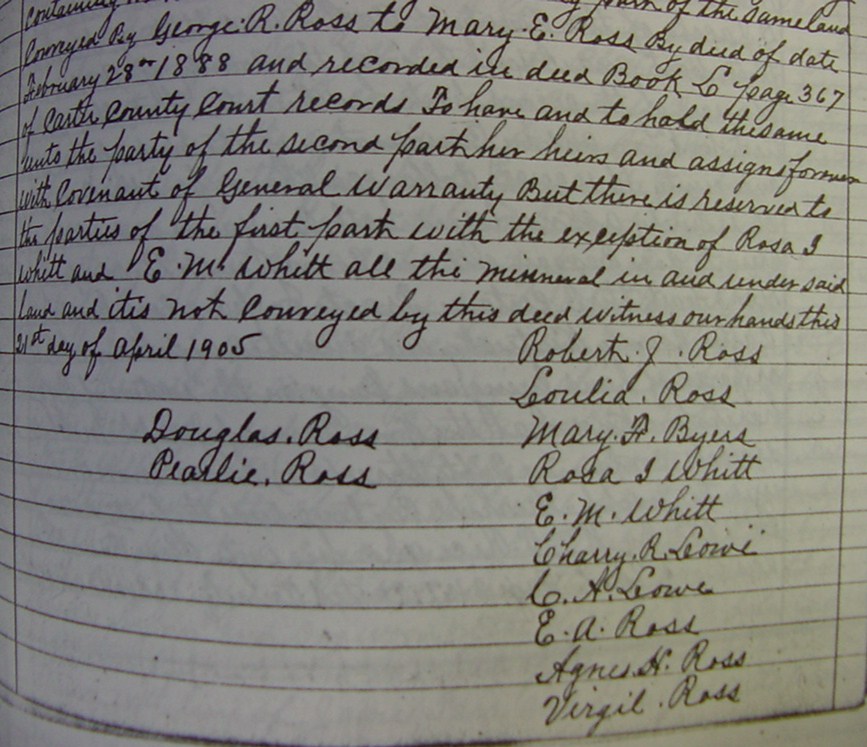 containing part of the same land
Conveyed By George. R. Ross to Mary. E. Ross By died of date
February 28th 1888 and recorded in deed Book L page 367
of Carter County Court records To have and to hold the same
unto the party of the second part her heirs and assigns forever
with Covenant of General Warranty But there is reserved to
the parties of the first part with the exception of Rosa I
Whitt and E. M. Whitt all the minneral in and under said
land and it is not Conveyed by this deed witness our hands this
21st day of April 1905
Robert. J. Ross
Loulia. Ross
Douglas. Ross Mary. F. Byers
Pearlie. Ross Rosa I Whitt
E. M. Whitt
Charry. R. Lowe
C. A. Lowe
E. A. Ross
Agnes. H. Ross
Virgil. Ross